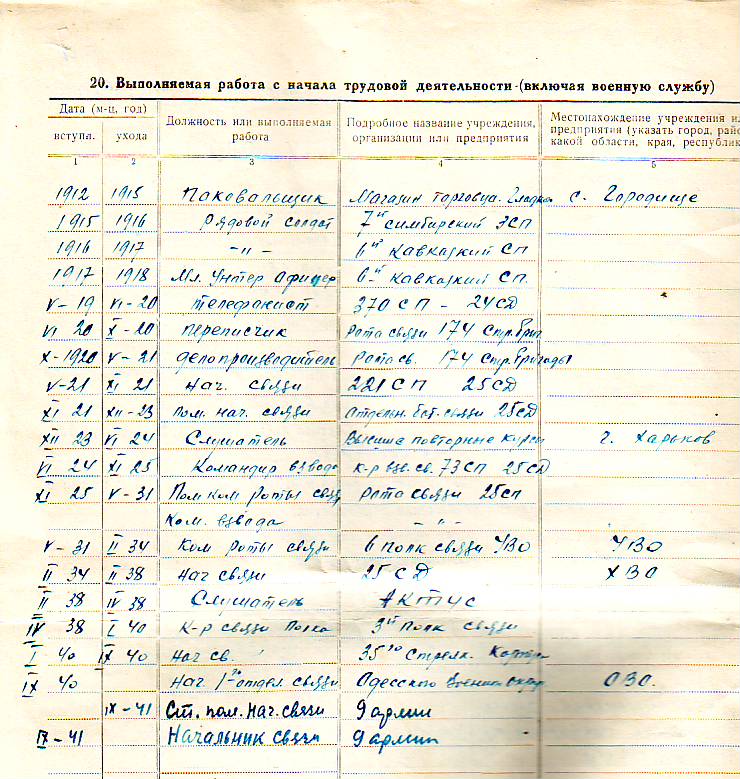 20. Выполняемая работа с начала трудовой деятельности (включая военную службу)
Дата (м-ц, год) Должность или выполняемая работа Подробное название учреждения, организации или предприятия Местонахождение учреждения ил предприятия (указать город, райо какой области, края, республик
вступл. ухода
1 2 3 4 5
1912 1915 Паковальщик Магазин торговца с. Городище
1915 1916 рядовой солдат 7й симбирский ЗСП
1916 1917 -"- 6й Кавказкий СП
1917 1918 Мл. Унтер Офицер 6й Кавказкий СП.
V-19 VI-20 телефонист 370 СП - 24 СД
VI 20 X-20 переписчик Рота связи 174 Стр. Бриг
X-1920 V-21 делопроизводитель Рота св. 174 Стр. Бригады
V-21 XI 21 Нач. связи 221 СП 25 СД
XI 21 XII-23 Пом. нач. связи Отдельн. связи 25 СД
XII 23 VI 24 Слушатель Высшие повторные курсы г. Харьков
VI 24 XI 25 Командир взвода к-р взв. св. 73 СП 25 СД
XI 25 V-31 Пом Ком Роты связи Рота связи 25 СП
Ком. взвода -"-
V-31 II 34 Ком роты связи 6 полк связи УВО УВО
II 34 II 38 Нач связи 25 СД ХВО
II 38 IV 38 Слушатель АКТУС
IV 38 I 40 К-р связи Полка 3й Полк связи
I 40 IX 40 Нач св. 35го Стрелк. Корпуса
IX 40 Нач. 1го отдел. связи Одесского Военного Округ ОВО.
IX-41 Ст. пом. нач. связи 9 армии
IX-41 Начальник связи 9 армии